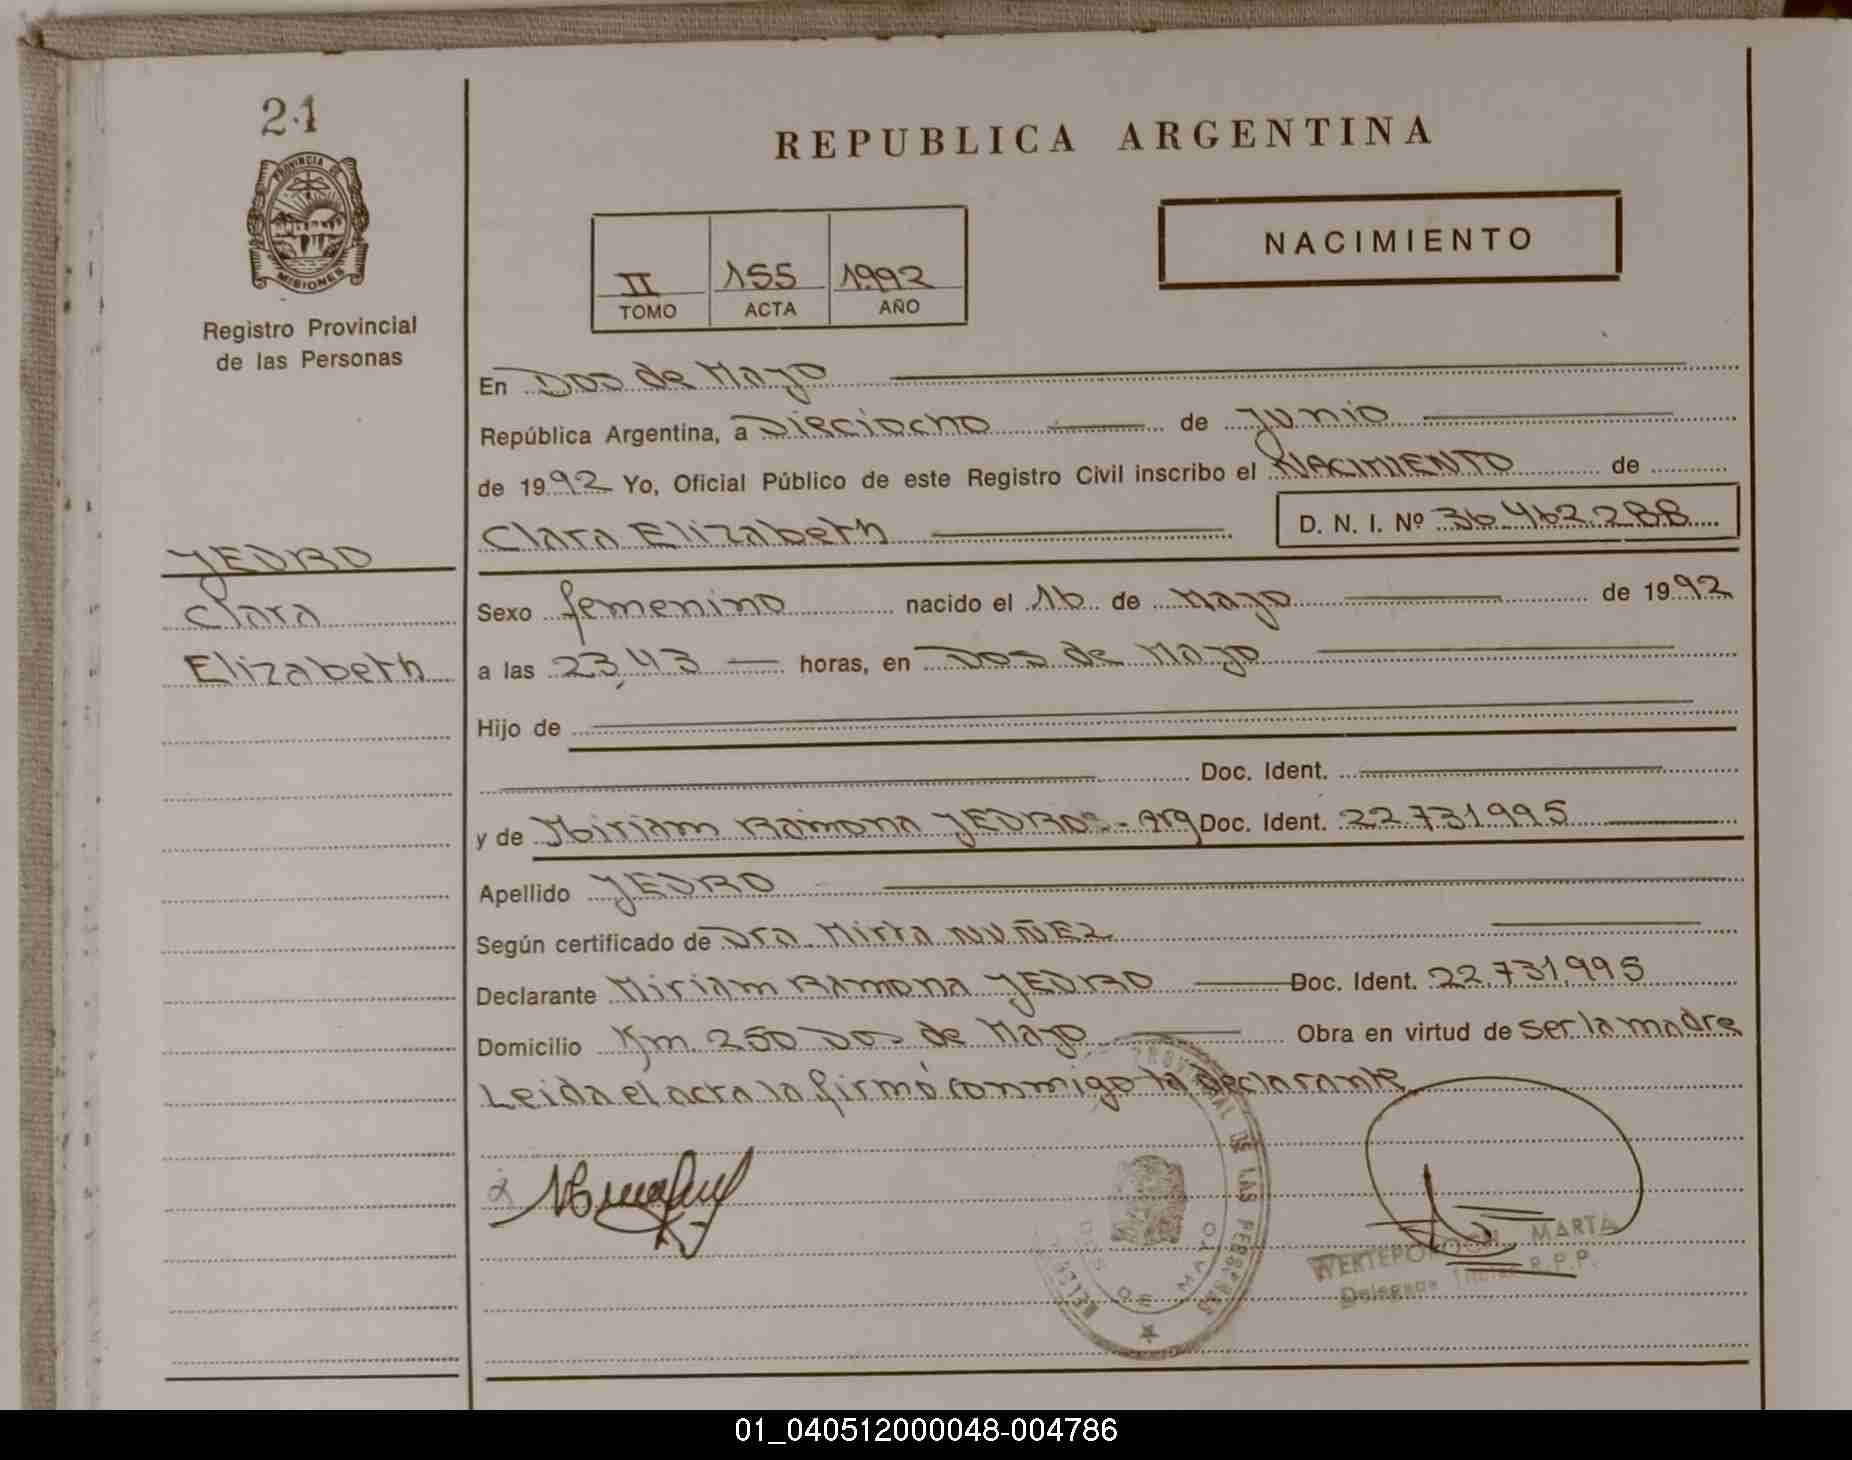 21
PROVINCIA DE
MISIONES
Registro Provincial
de las Personas
YEDRO
Clara
Elizabeth
REPUBLICA ARGENTINA
II 155 1992
TOMO ACTA AÑO
NACIMIENTO
En Dos de Mayo
República Argentina, a Dieciocho de Junio
de 1992 Yo, Oficial Público de este Registro Civil inscribo el NACIMIENTO de
Clara Elizabeth D. N. I. Nº 36.462.288
Sexo femenino nacido el 16 de Mayo de 1992
a las 23,43 horas, en Dos de Mayo
Hijo de
Doc. Ident.
y de Miriam Ramona YEDRO - Arg Doc. Ident. 22.731995
Apellido YEDRO
Según certificado de Dra. Mirta NUÑEZ
Declarante Miriam Ramona YEDRO Doc. Ident. 22.731.995
Domicilio Km. 250 Dos de Mayo Obra en virtud de ser la madre
Leida el acta la firmó conmigo la declarante
PROVINCIAL DE LAS PERSONAS
DOS DE MAYO
MARTA
R.P.P.
01_040512000048-004786